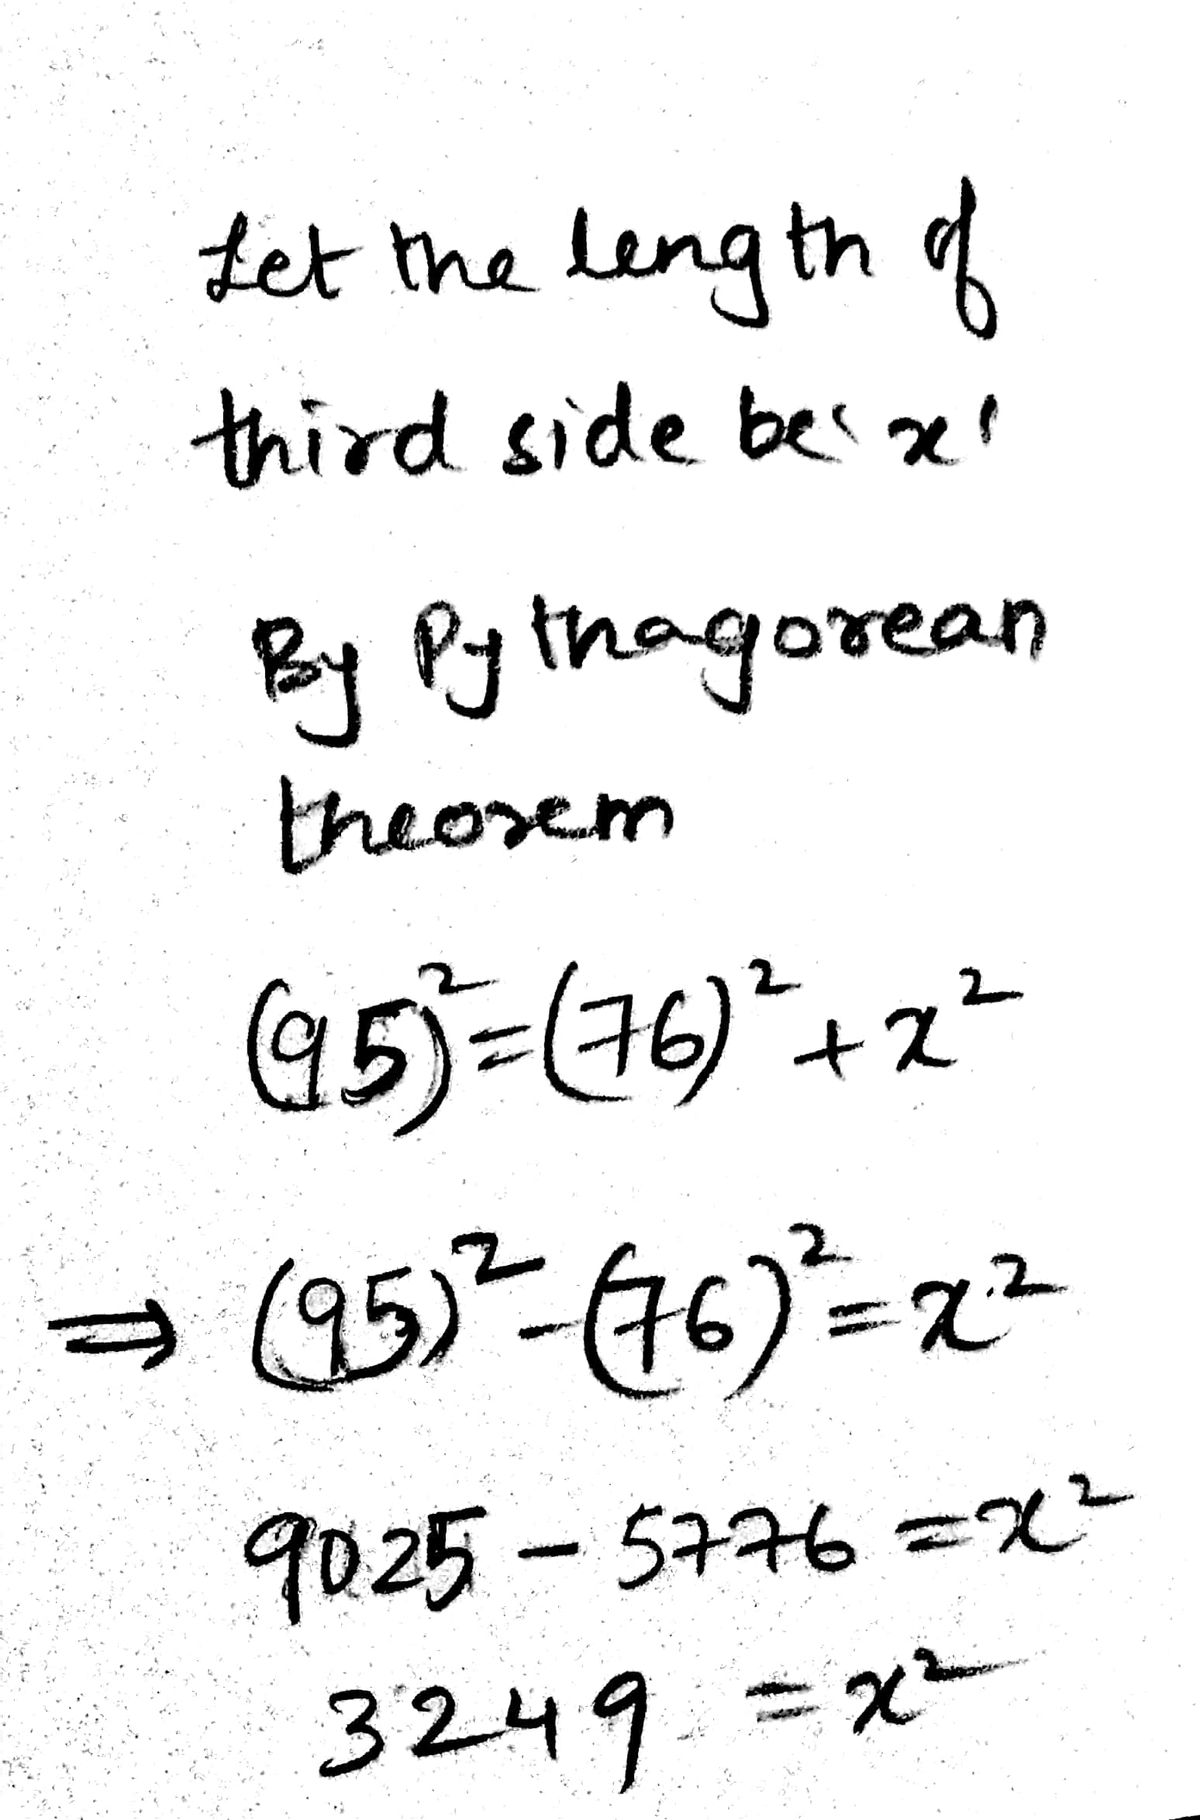 Let the length of
third side be 'x'
By Pythagorean
theorem
(95)² = (76)² + x²
⇒ (95)² - (76)² = x²
9025 - 5776 = x²
3249 = x²